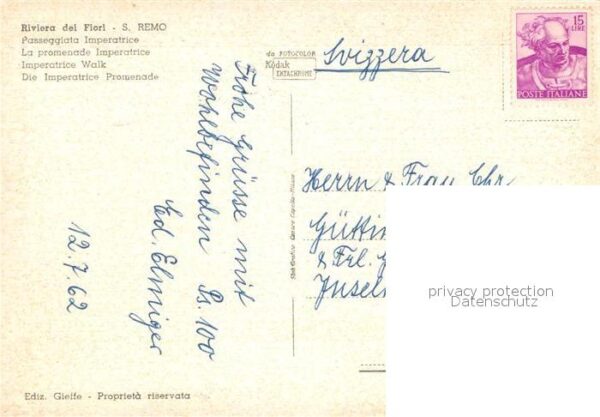 Riviera dei Fiori - S. REMO
Passeggiata Imperatrice
La promenade Imperatrice
Imperatrice Walk
Die Imperatrice Promenade
da FOTOCOLOR
Kodak
EKTACHROME
Svizzera
15
LIRE
POSTE ITALIANE
Frohe Grüsse mit
Wohlbefinden Ps. 100
Ed. Elmiger
12.7.62
Herrn & Frau Chr
Güttin
& Frl.
Inseln
privacy protection
Datenschutz
Ediz. Gieffe - Proprietà riservata